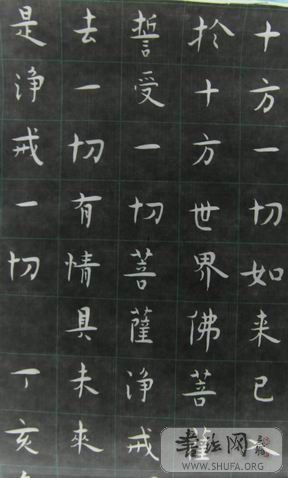 十方一切如来已
於十方世界佛菩薩
誓受一切菩薩浄戒
去一切有情具未來
是浄戒一切 丁亥
書法网
WWW.SHUFA.ORG